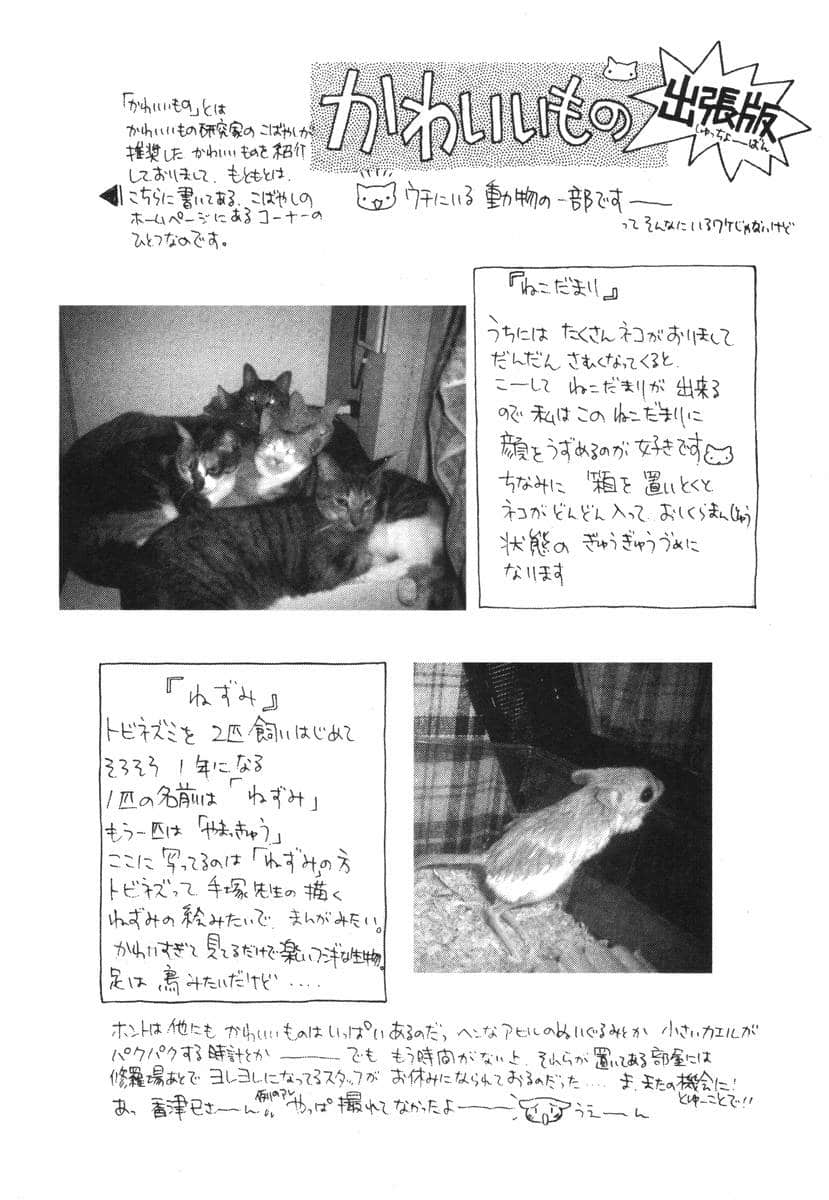 かわいいもの
出張版
しゅっちょーばん
「かわいいもの」とは
かわいいもの研究家のこばやしが
推奨した かわいいものを紹介
しておりまして、もともとは、
こちらに書いてある、こばやしの
ホームページにあるコーナーの
ひとつなのです。
ウチにいる 動物の一部です――
って そんなにいるワケじゃないけど
『ねこだまり』
うちには たくさんネコがおりまして
だんだん さむくなってくると、
こーして ねこだまりが 出来る
ので 私は この ねこだまりに
顔をうずめるのが 好きです
ちなみに 箱を 置いとくと
ネコが どんどん 入って おしくらまんじゅう
状態の ぎゅうぎゅうづめに
なります
『ねずみ』
トビネズミを 2匹 飼いはじめて
そろそろ 1年になる
1匹の名前は 「ねずみ」
もう一匹は 「やまっきゅう」
ここに 写ってるのは 「ねずみ」の方
トビネズって 手塚先生の 描く
ねずみの 絵みたいで、まんがみたい。
かわいすぎて 見てるだけで楽しいフシギな生物。
足は 鳥みたいだけど ‥‥
ホントは 他にも かわいいものは いっぱい あるのだっ ヘンなアヒルのぬいぐるみとか 小さいカエルが
パクパクする 時計とか―― でも もう時間がないよ、それらが 置いてある 部屋には
修羅場あとで ヨレヨレになってるスタッフが お休みになられておるのだった‥‥ ま、またの機会に!
とゆーことで!!
あっ 香津巳さーん 例のアレ やっぱ 撮れてなかったよ―― うえーん